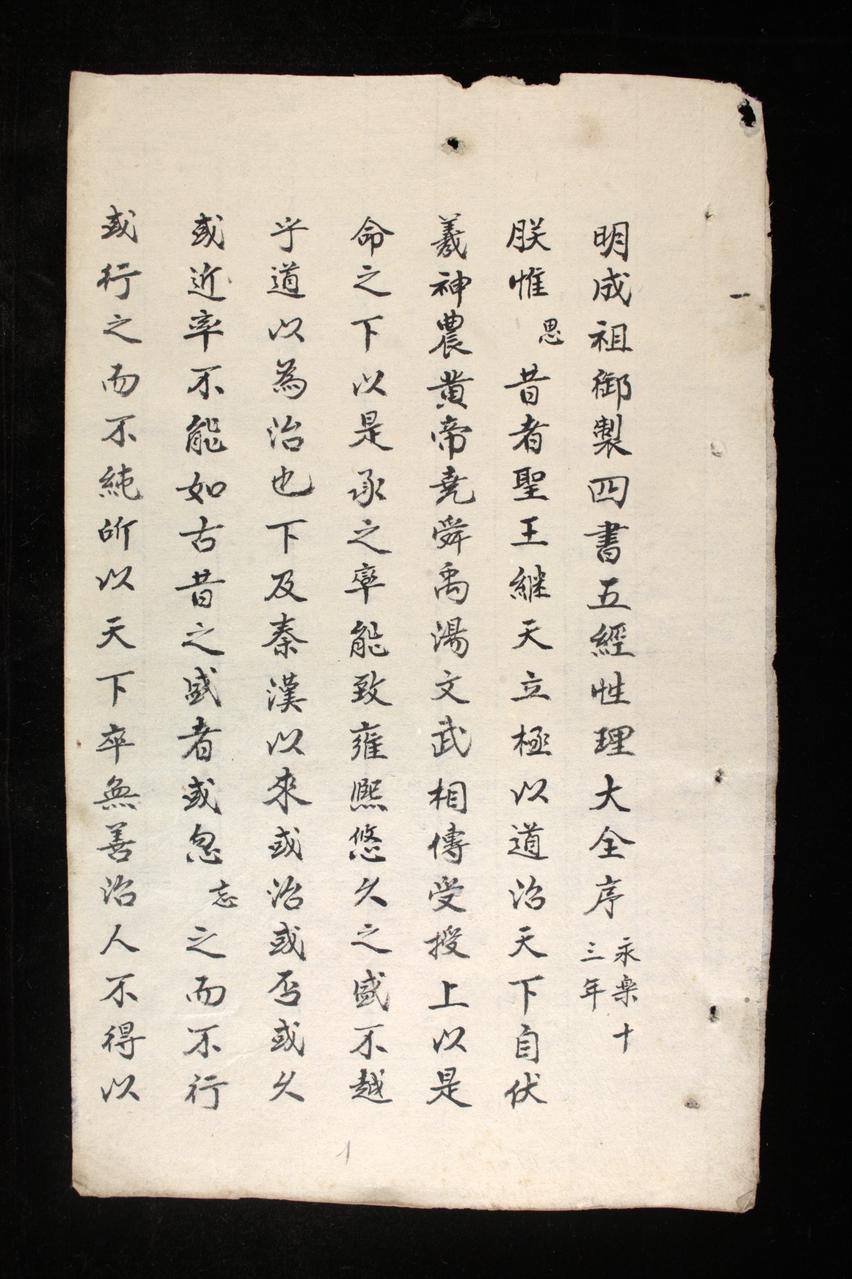 明成祖御製四書五經性理大全序永樂十三年
朕惟思昔者聖王継天立極以道治天下自伏
羲神農黄帝堯舜禹湯文武相傳受授上以是
命之下以是承之率能致雍熙悠久之盛不越
乎道以為治也下及秦漢以來或治或否或久
或近率不能如古昔之盛者或忽忘之而不行
或行之而不純所以天下卒無善治人不得以
1